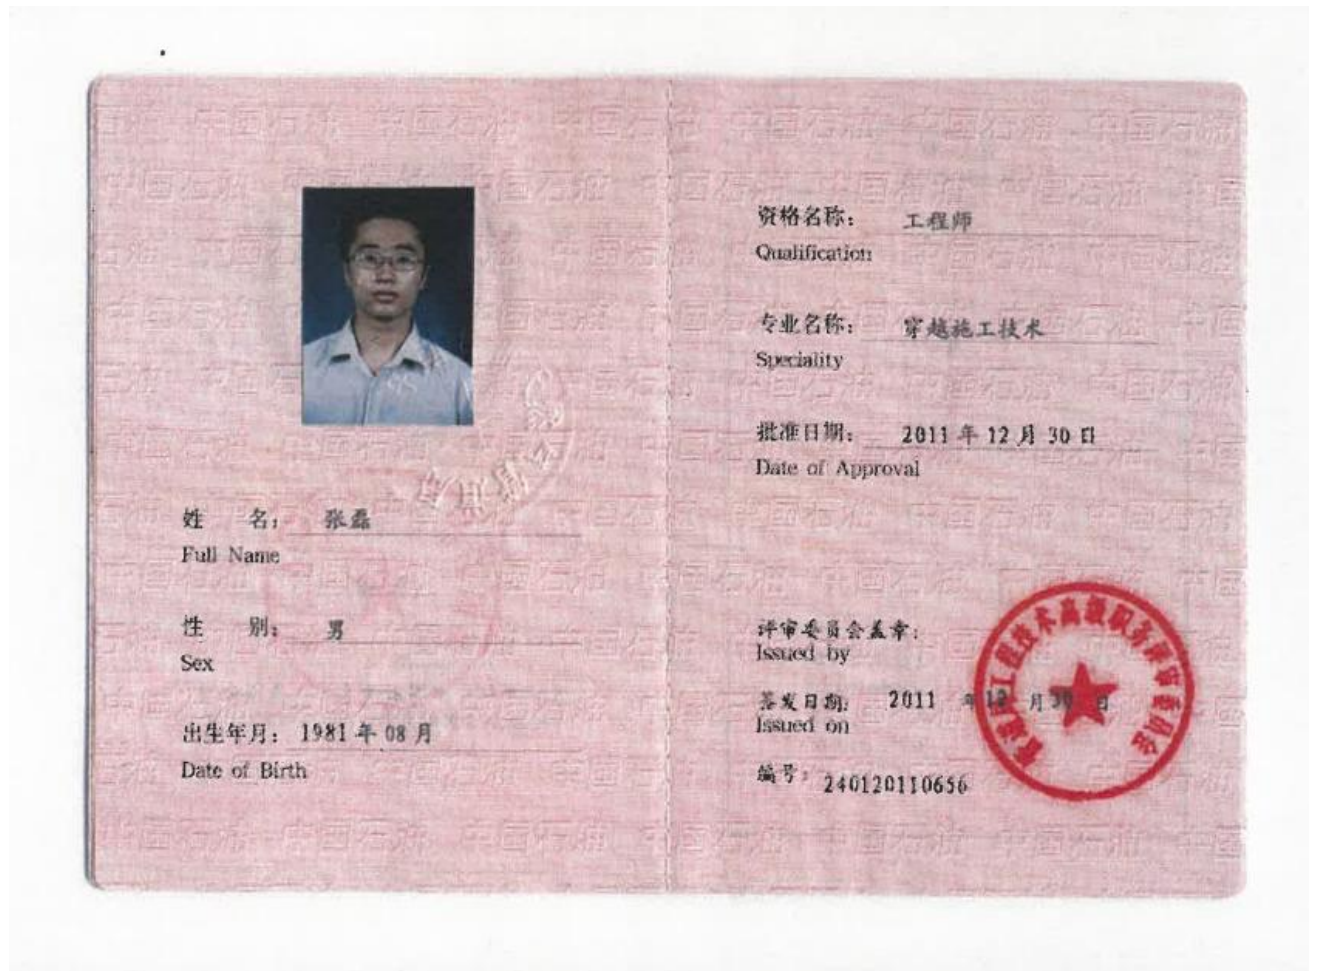 姓 名: 张磊
Full Name
性 别: 男
Sex
出生年月: 1981 年 08 月
Date of Birth
资格名称: 工程师
Qualification
专业名称: 穿越施工技术
Speciality
批准日期: 2011 年 12 月 30 日
Date of Approval
评审委员会盖章:
Issued by
签发日期: 2011 年 12 月 30 日
Issued on
编号: 240120110656
管道局工程技术高级职务评审委员会
中国石油